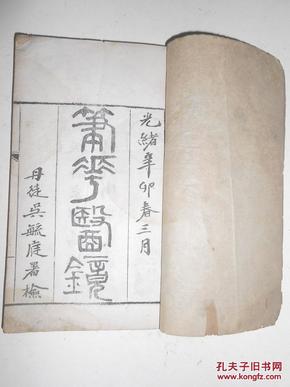 光緒辛卯春三月
筆花醫鏡
丹徒吳毓庭署檢
孔夫子旧书网